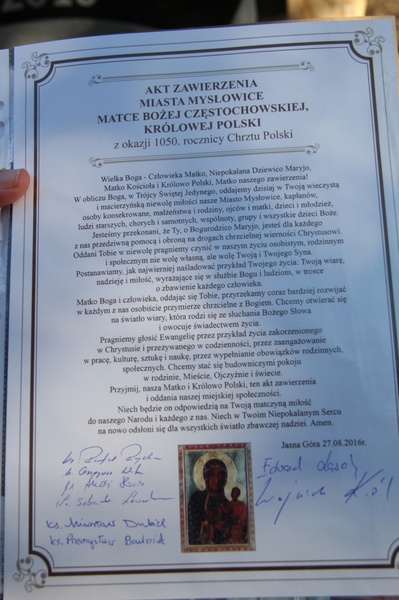 2016
AKT ZAWIERZENIA
MIASTA MYSŁOWICE
MATCE BOŻEJ CZĘSTOCHOWSKIEJ,
KRÓLOWEJ POLSKI
z okazji 1050. rocznicy Chrztu Polski
Wielka Boga - Człowieka Matko, Niepokalana Dziewico Maryjo,
Matko Kościoła i Królowo Polski, Matko naszego zawierzenia!
W obliczu Boga, w Trójcy Świętej Jedynego, oddajemy dzisiaj w Twoją wieczystą
i macierzyńską niewolę miłości nasze Miasto Mysłowice, kapłanów,
osoby konsekrowane, małżeństwa i rodziny, ojców i matki, dzieci i młodzież,
ludzi starszych, chorych i samotnych, wspólnoty, grupy i wszystkie dzieci Boże.
Jesteśmy przekonani, że Ty, o Bogurodzico Maryjo, jesteś dla każdego
z nas przedziwną pomocą i obroną na drogach chrzcielnej wierności Chrystusowi.
Oddani Tobie w niewolę pragniemy czynić w naszym życiu osobistym, rodzinnym
i społecznym nie wolę własną, ale wolę Twoją i Twojego Syna.
Postanawiamy, jak najwierniej naśladować przykład Twojego życia: Twoją wiarę,
nadzieję i miłość, wyrażające się w służbie Bogu i ludziom, w trosce
o zbawienie każdego człowieka.
Matko Boga i człowieka, oddając się Tobie, przyrzekamy coraz bardziej rozwijać
w każdym z nas osobiście przymierze chrzcielne z Bogiem. Chcemy otwierać się
na światło wiary, która rodzi się ze słuchania Bożego Słowa
i owocuje świadectwem życia.
Pragniemy głosić Ewangelię przez przykład życia zakorzenionego
w Chrystusie i przeżywanego w codzienności, przez zaangażowanie
w pracę, kulturę, sztukę i naukę, przez wypełnianie obowiązków rodzinnych,
społecznych. Chcemy stać się budowniczymi pokoju
w rodzinie, Mieście, Ojczyźnie i świecie.
Przyjmij, nasza Matko i Królowo Polski, ten akt zawierzenia
i oddania naszej miejskiej społeczności.
Niech będzie on odpowiedzią na Twoją matczyną miłość
do naszego Narodu i każdego z nas. Niech w Twoim Niepokalanym Sercu
na nowo odsłoni się dla wszystkich światło zbawczej nadziei. Amen.
Jasna Góra 27.08.2016r.
Edward
ks.
ks.
ks.